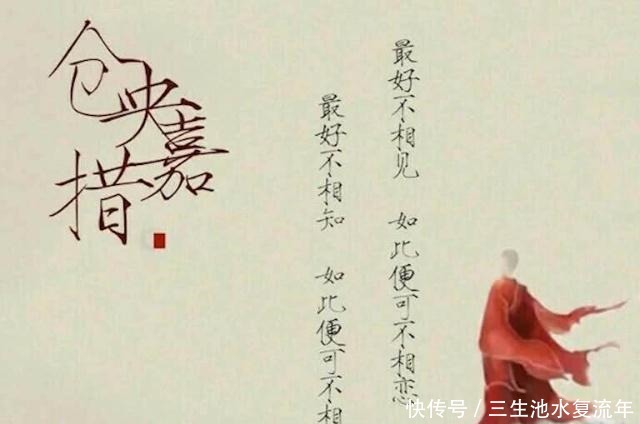 仓央嘉措
最好不相见 如此便可不相恋
最好不相知 如此便可不相
快传号／三生池水复流年